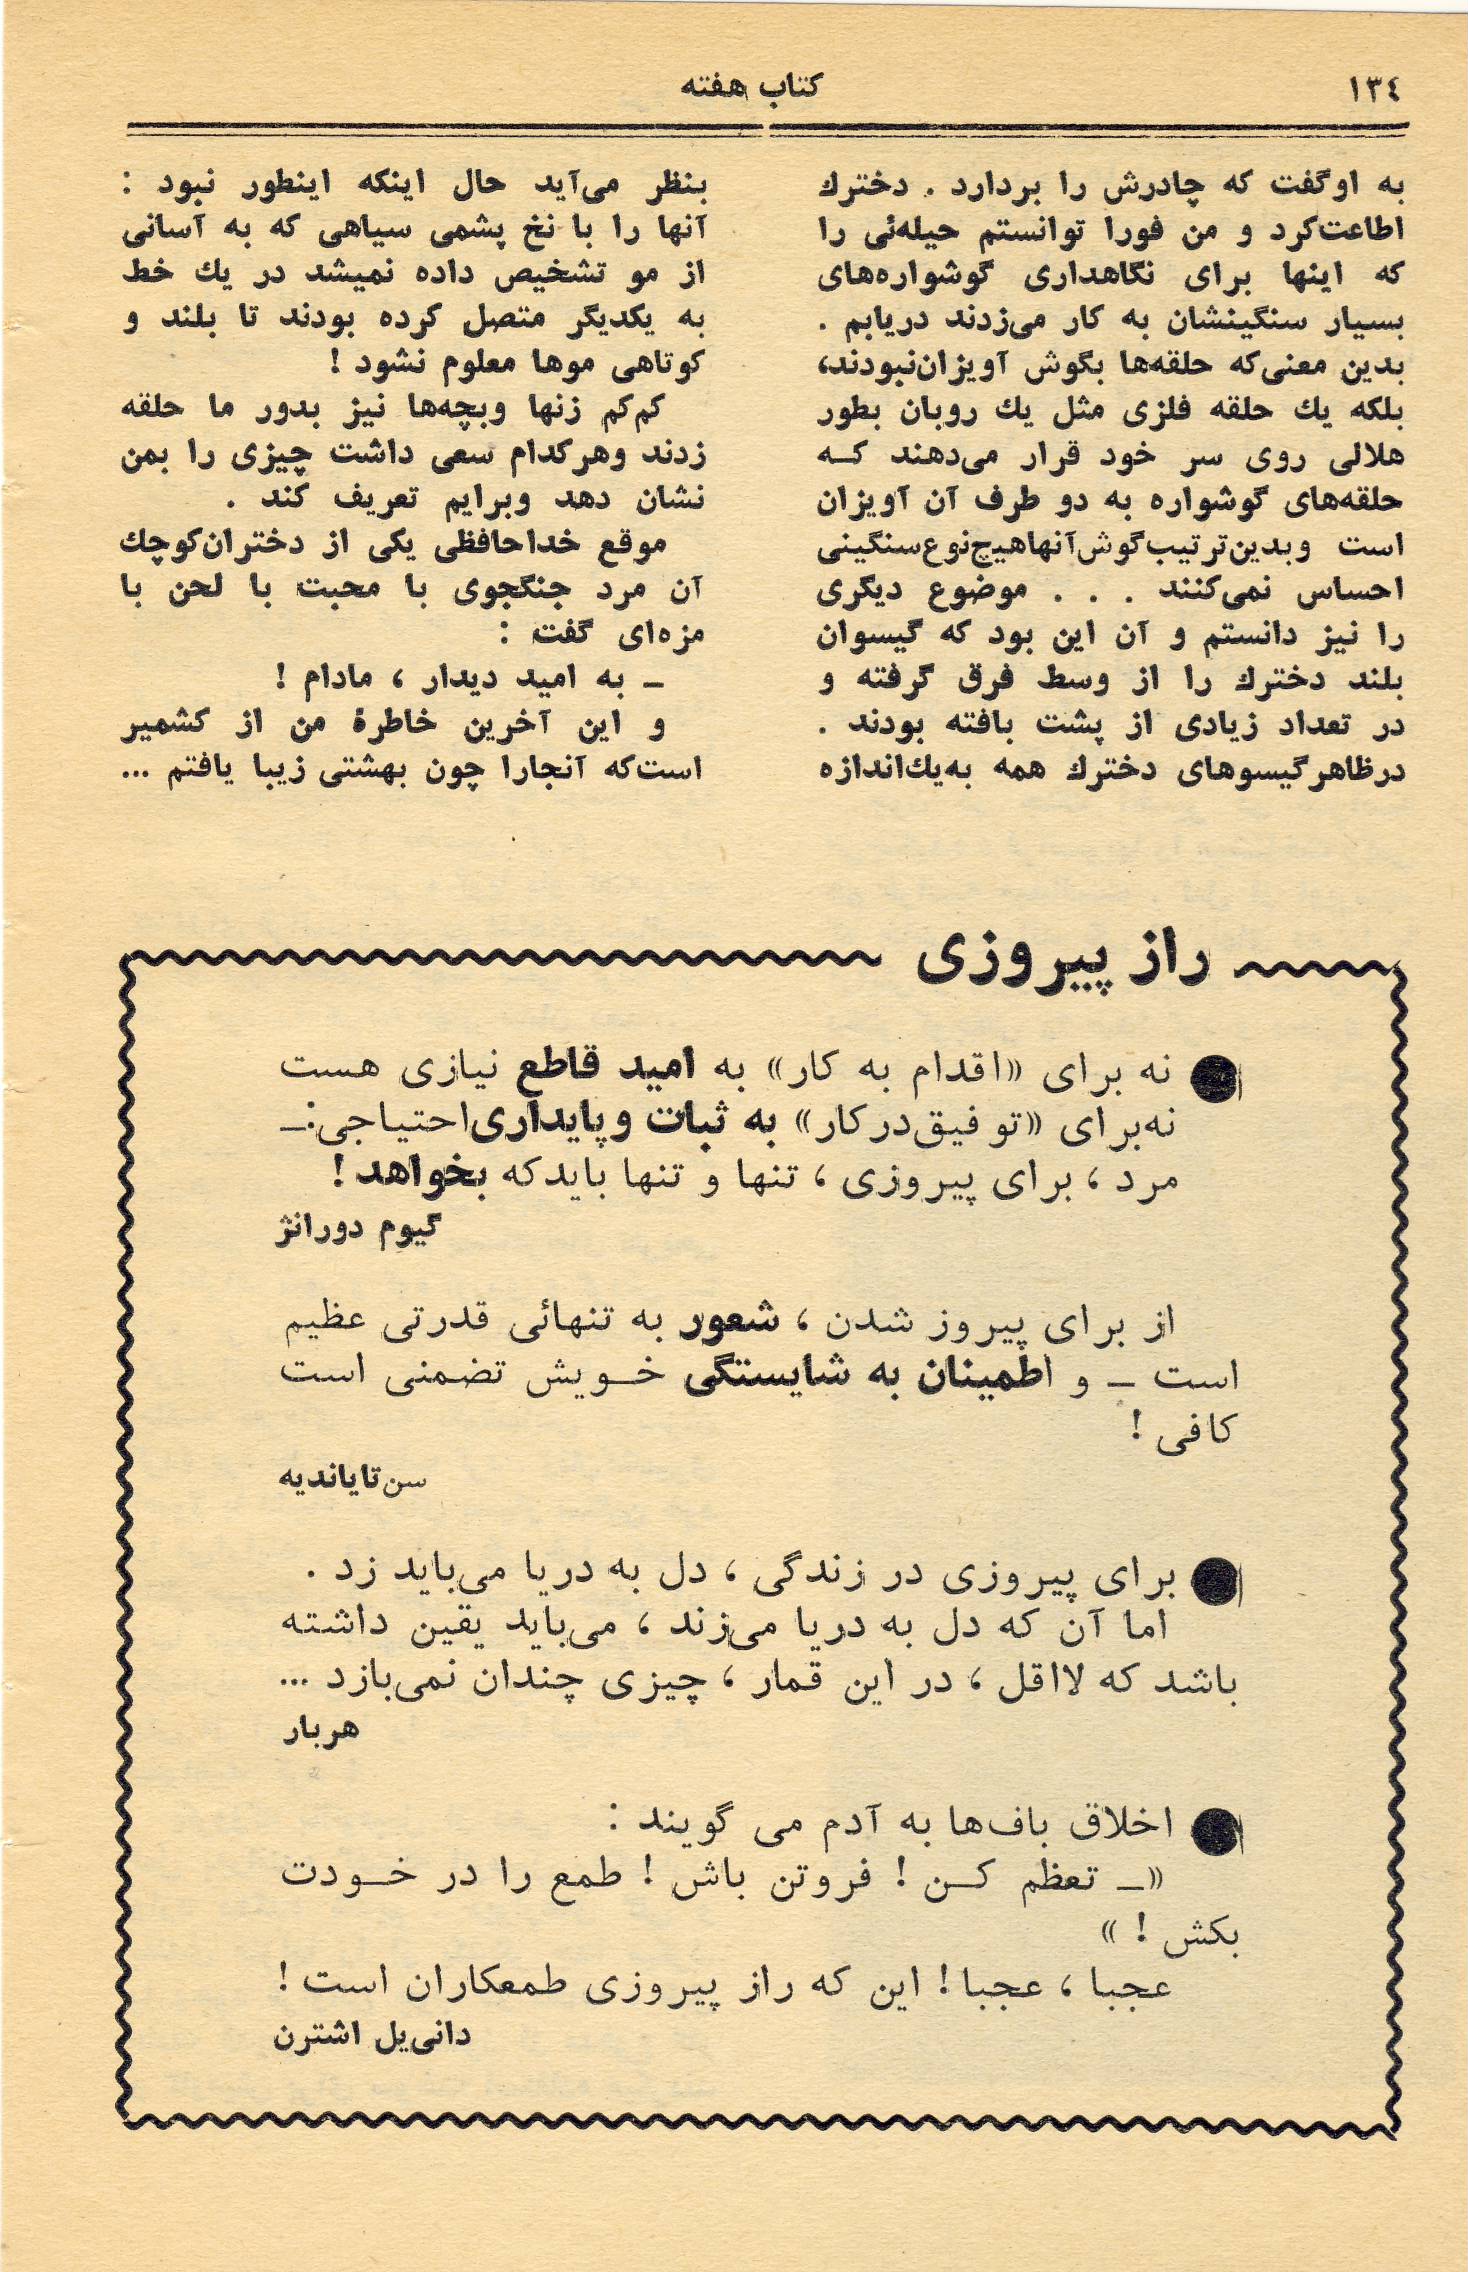 ١٣٤
کتاب هفته
به اوگفت که چادرش را بردارد . دخترك
اطاعت‌کرد و من فورا توانستم حیله‌ئی را
که اینها برای نگاهداری گوشواره‌های
بسیار سنگینشان به کار می‌زدند دریابم .
بدین معنی‌که حلقه‌ها بگوش آویزان‌نبودند،
بلکه یك حلقه فلزی مثل یك روبان بطور
هلالی روی سر خود قرار می‌دهند کـه
حلقه‌های گوشواره به دو طرف آن آویزان
است وبدین‌ترتیب‌گوش‌آنهاهیچ‌نوع‌سنگینی
احساس نمی‌کنند . . . موضوع دیگری
را نیز دانستم و آن این بود که گیسوان
بلند دخترك را از وسط فرق گرفته و
در تعداد زیادی از پشت بافته بودند .
درظاهرگیسوهای دخترك همه به‌یك‌اندازه
بنظر می‌آید حال اینکه اینطور نبود :
آنها را با نخ پشمی سیاهی که به آسانی
از مو تشخیص داده نمیشد در یك خط
به یکدیگر متصل کرده بودند تا بلند و
کوتاهی موها معلوم نشود !
کم‌کم زنها وبچه‌ها نیز بدور ما حلقه
زدند وهرکدام سعی داشت چیزی را بمن
نشان دهد وبرایم تعریف کند .
موقع خداحافظی یکی از دختران‌کوچك
آن مرد جنگجوی با محبت با لحن با
مزه‌ای گفت :
ـ به امید دیدار ، مادام !
و این آخرین خاطرهٔ من از کشمیر
است‌که آنجارا چون بهشتی زیبا یافتم ...
راز پیروزی
● نه برای «اقدام به کار» به امید قاطع نیازی هست
نه‌برای «توفیق‌درکار» به ثبات وپایداری‌احتیاجی:ـ
مرد ، برای پیروزی ، تنها و تنها بایدکه بخواهد !
گیوم دورانژ
از برای پیروز شدن ، شعور به تنهائی قدرتی عظیم
است ـ و اطمینان به شایستگی خـویش تضمنی است
کافی !
سن‌تایاندیه
● برای پیروزی در زندگی ، دل به دریا می‌باید زد .
اما آن که دل به دریا می‌زند ، می‌باید یقین داشته
باشد که لااقل ، در این قمار ، چیزی چندان نمی‌بازد ...
هربار
● اخلاق باف‌ها به آدم می گویند :
«ـ تعظم کـن ! فروتن باش ! طمع را در خـودت
بکش ! »
عجبا ، عجبا ! این که راز پیروزی طمعکاران است !
دانی‌یل اشترن